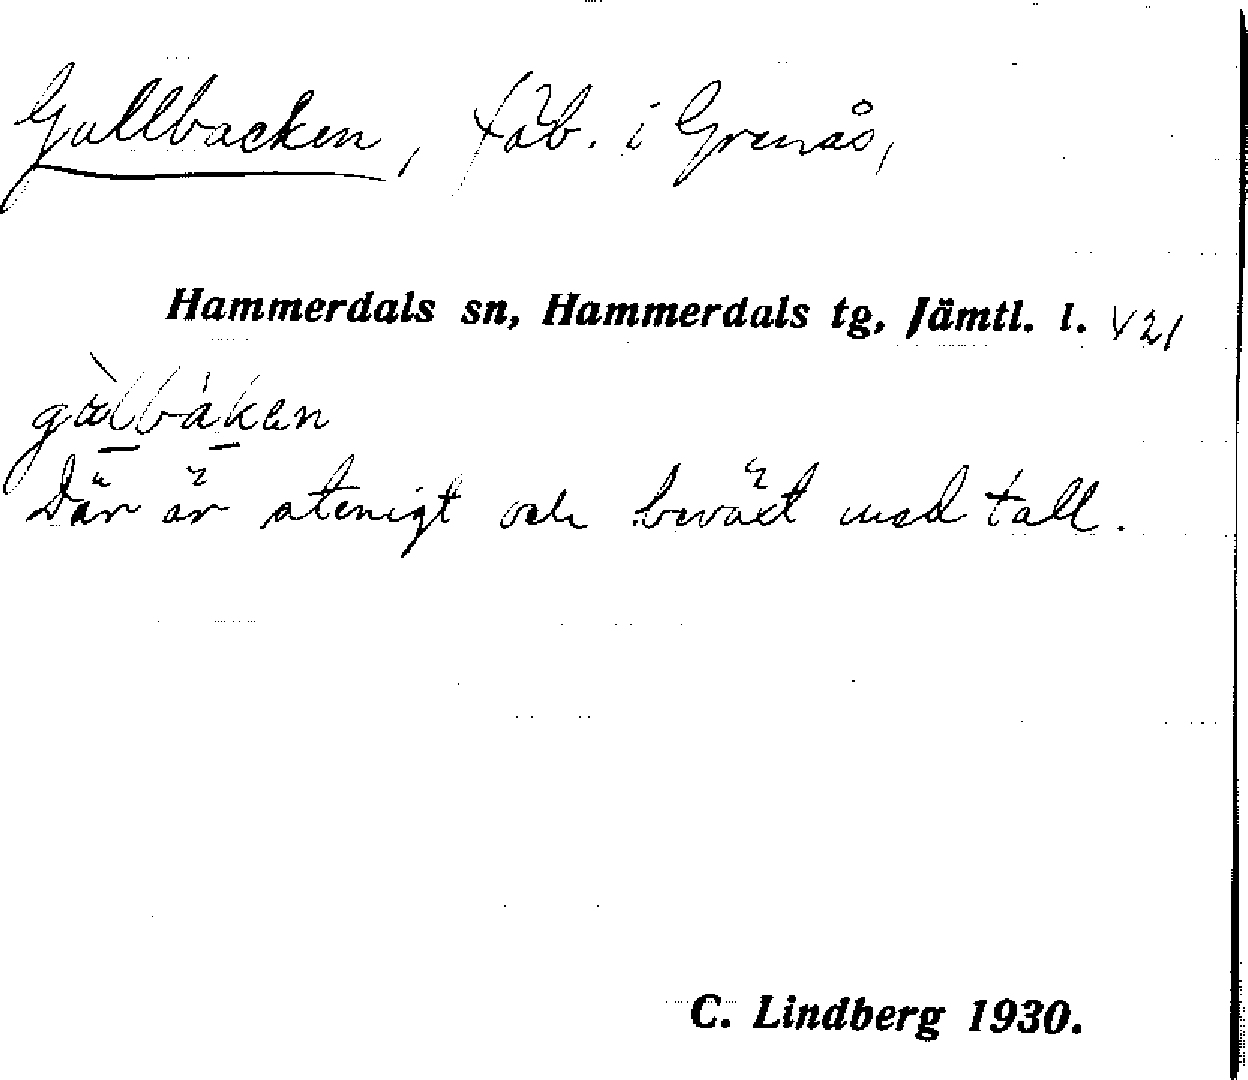 Gallbacken, fäb. i Grenås,
Hammerdals sn, Hammerdals tg, Jämtl. l. V21
gàlbákan
Där är stenigt och beväxt med tall.
C. Lindberg 1930.